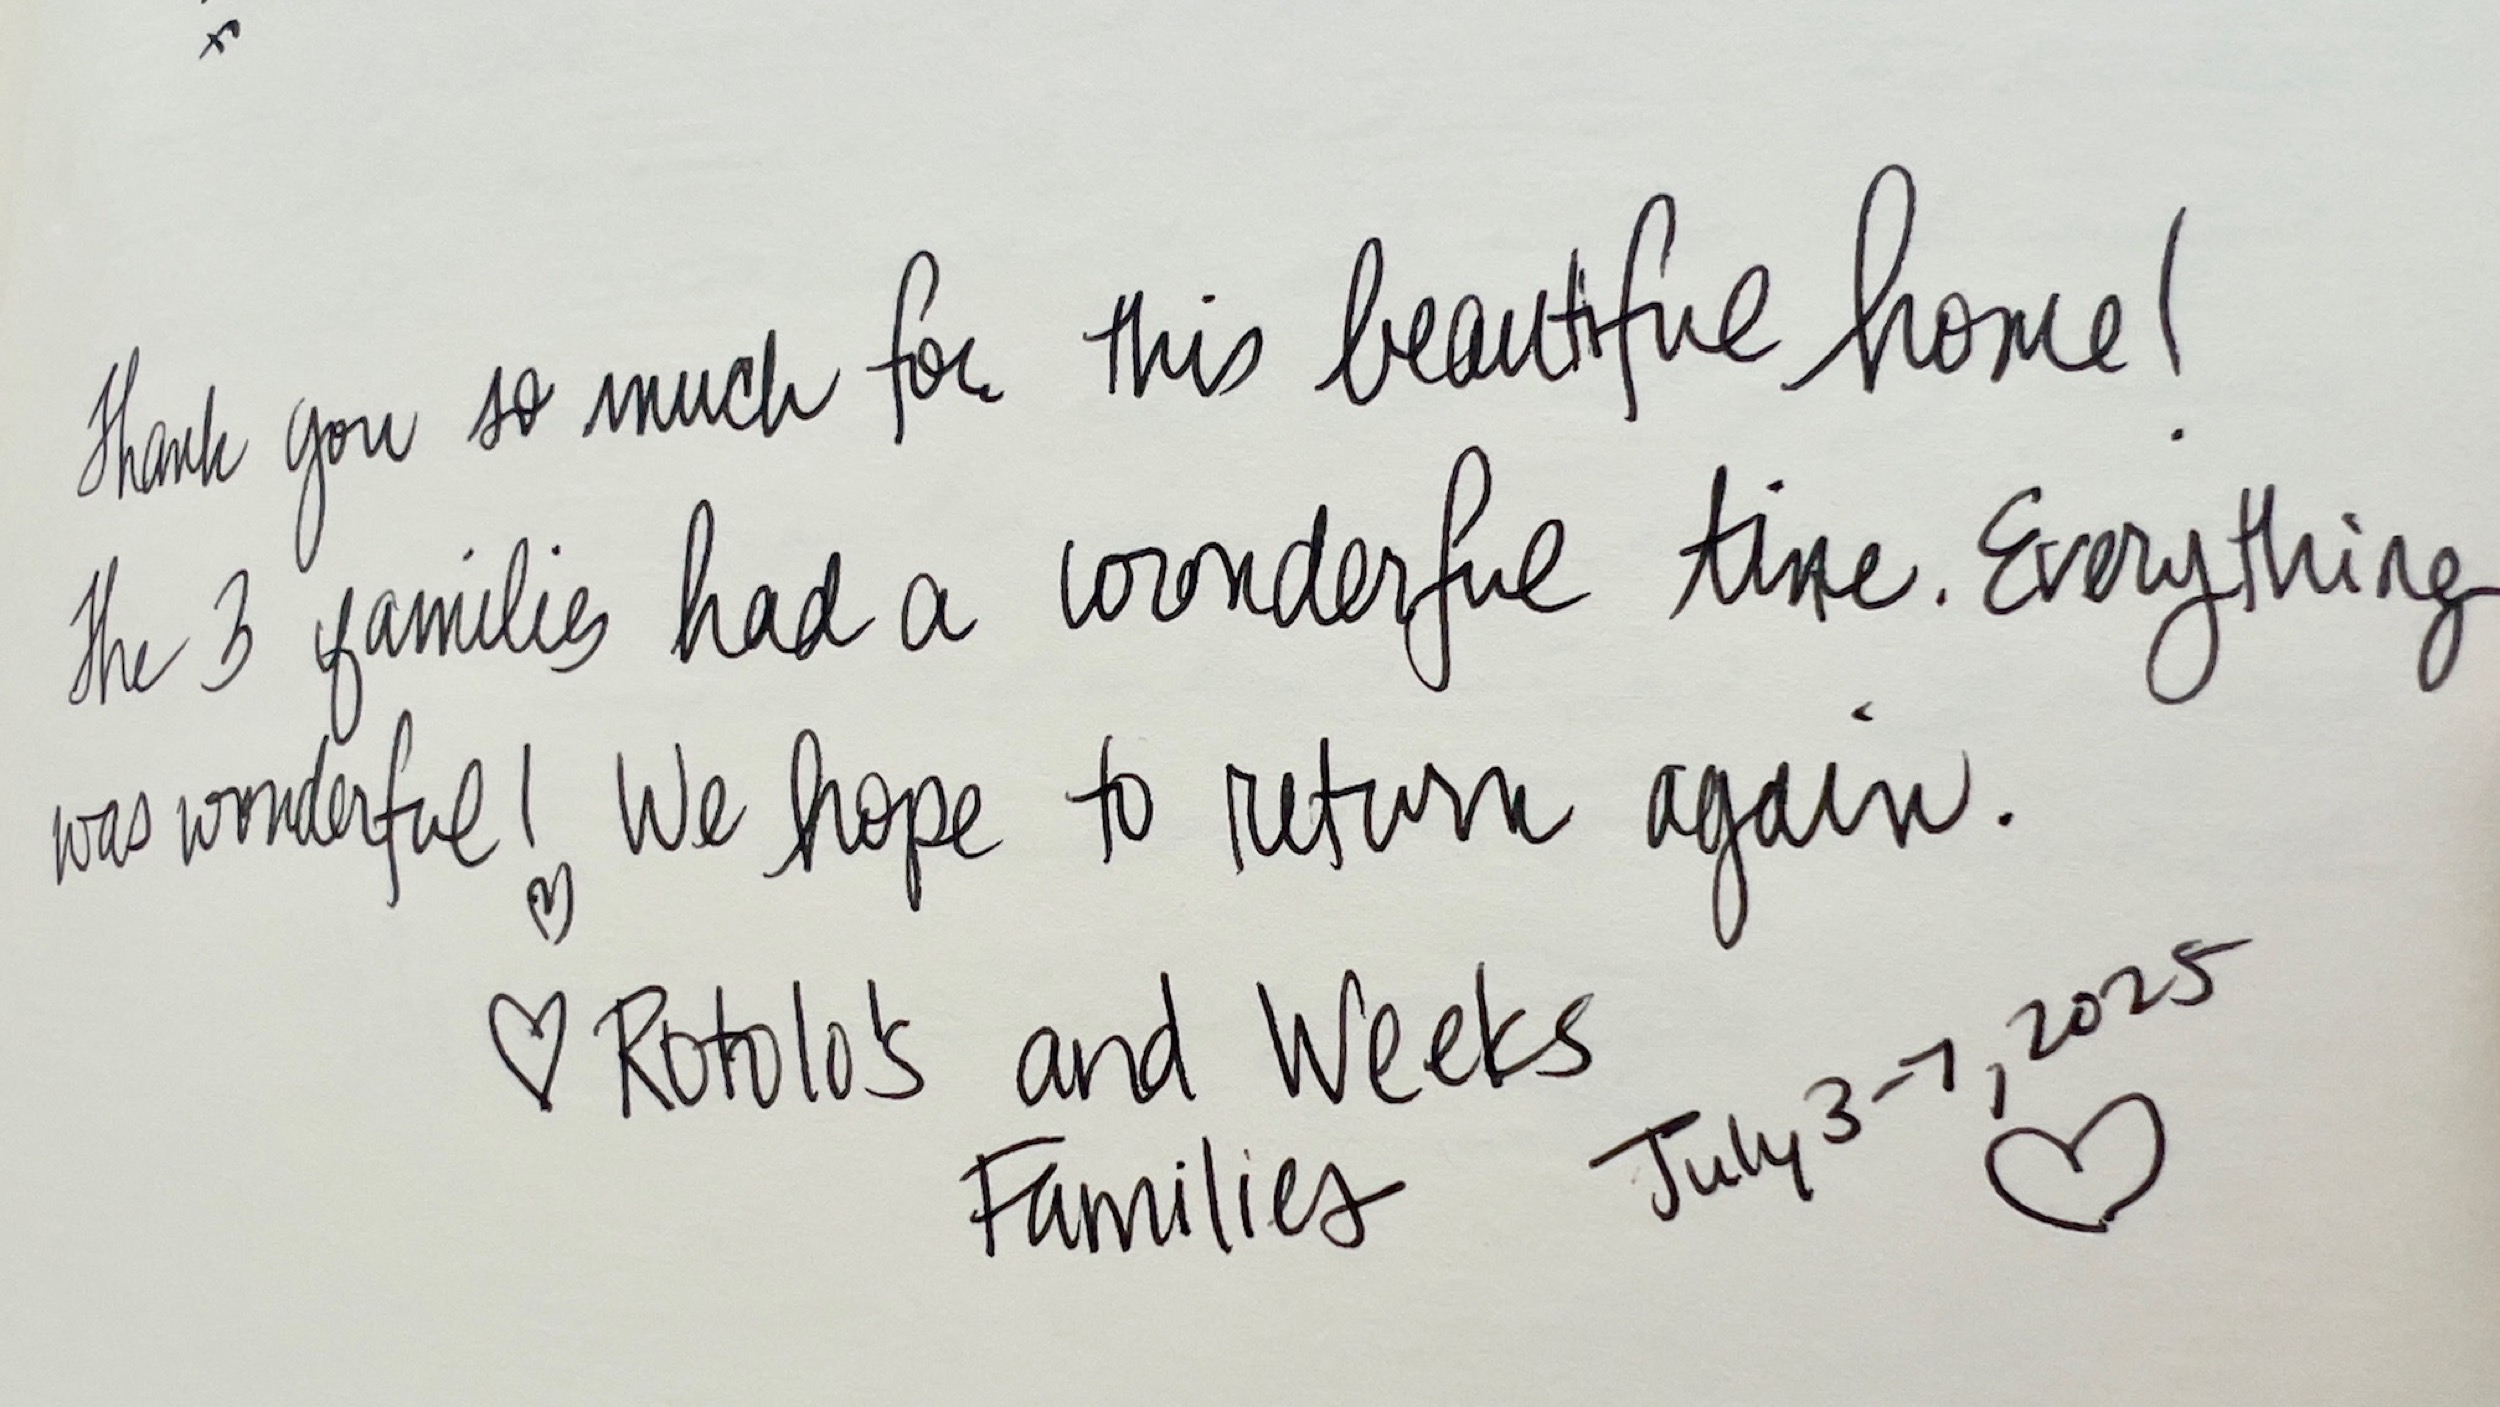 Thank you so much for this beautiful home!
The 3 families had a wonderful time. Everything
was wonderful! We hope to return again.
♡
♡ Rotolo's and Weeks
Families
July 3-7, 2025
♡